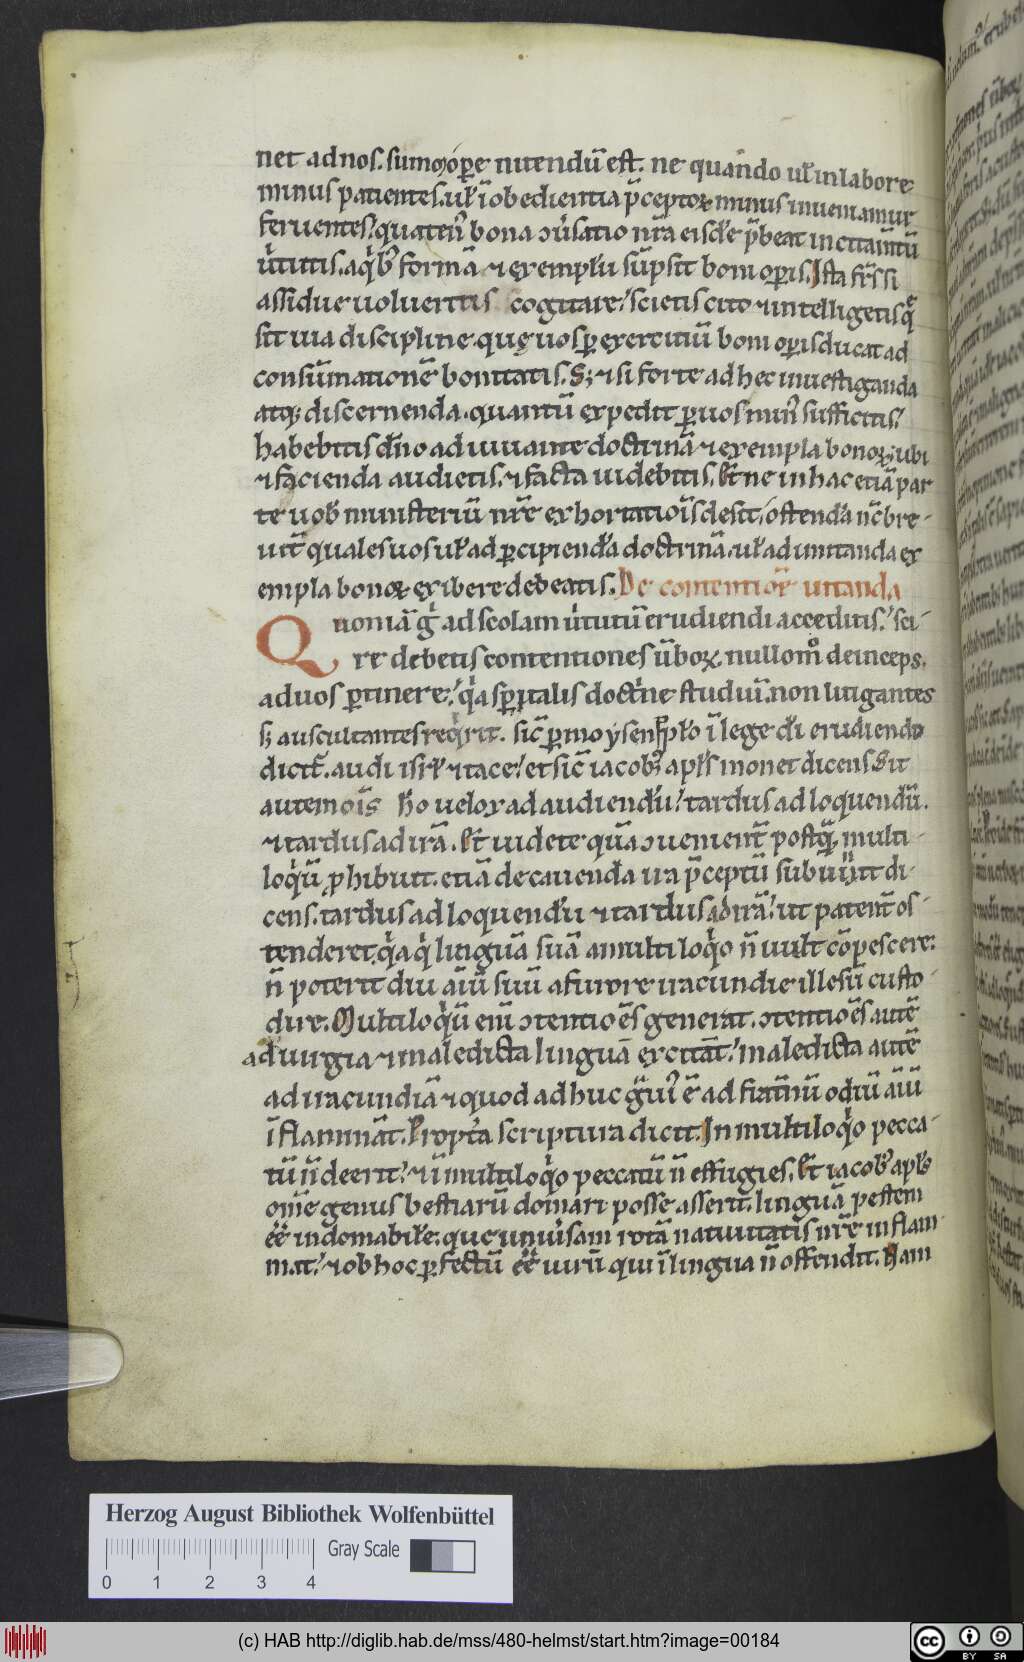 net ad nos. sumoꝑe nitendū est. ne quando ul̄ in labore
minus patientes. ul̄ īobedientia p̄ceptoꝝ minus inueniamur
feruentes. quatenꝰ bona ↄu̓satio nr̄a eisd̄e p̄beat incitam̄tū
u̓tutis. a qͥbꝰ formā ⁊ exemplū sūpsit boni oꝑis. Ista fr̄s si
assidue uolueritis cogitare. scietis cito ⁊ intelligetis qͣ
sit uia discipline quę uos ꝑ exercitiū boni oꝑis ducat ad
consūmationē bonitatis. S; ⁊ si forte ad hec inuestiganda
atq; discernenda. quantū expedit ꝑ uos minꝰ sufficitis.
habebitis dn̄o adiuuante doctrinā ⁊ exempla bonoꝝ. ubi
⁊ facienda audietis. ⁊ facta uidebitis. Et ne in hac etiā par
te uob̄ ministeriū nr̄e exhortatiōis desit. ostendā nc̄ bre-
uit̄ quales uos ul̄ ad ꝑcipiendā doctrinā. ul̄ ad imitanda ex
empla bonoꝝ exibere debeatis. De contentiōe uitanda
Quoniā gͥ ad scolam u̓tutū erudiendi acceditis. sci-
re debetis contentiones ūboꝝ. nullom̊ deinceps.
ad uos ꝑtinere. qͥa sp̄italis doctͥne studiū. non litigantes
sꝫ auscultantes reqͥrit. sic̄ ꝑ moysen pp̄lo ī lege dī erudiendo
dicit̄. audi isrl̄ ⁊ tace. et sic̄ iacobꝰ apl̄s monet dicens Sit
autem oīs ho uelox ad audiendū. tardus ad loquendū.
⁊ tardus ad irā. Et uidete quā ↄuenient̄ postqͣ multi
loqͥū ꝓhibuit. etiā de cauenda ira p̄ceptū subiunxit di-
cens. tardus ad loquendū ⁊ tardus ad irā. ut patent̄ os-
tenderet. qͥa qͥ linguā suā a multiloqͥo n̄ uult cōpescere.
n̄ poterit diu aīū suū a furore iracundie illesū custo-
dire. Multiloqͥū eni ↄtentioēs generat. ↄtentioēs autē
ad iurgia ⁊ maledicta linguā excitāt. maledicta autē
ad iracundiā ⁊ quod adhuc gͣuiꝰ ē ad frat̄nū odiū aīū
īflammāt. Propt̄a scriptura dicit. In multiloqͥo pecca-
tū n̄ deerit. ⁊ ū multiloqͥo peccatū n̄ effugies. Et iacobꝰ apl̄s
om̄e genus bestiarū domari posse asserit. linguā pestem
eē indomabile. que uniu̓sam rotā natiuitatis nr̄e inflam-
mat. ⁊ ob hoc ꝑfectū eē uirū qui ī lingua n̄ offendit. Nam
Herzog August Bibliothek Wolfenbüttel
Gray Scale
0 1 2 3 4
(c) HAB http://diglib.hab.de/mss/480-helmst/start.htm?image=00184
cc BY SA